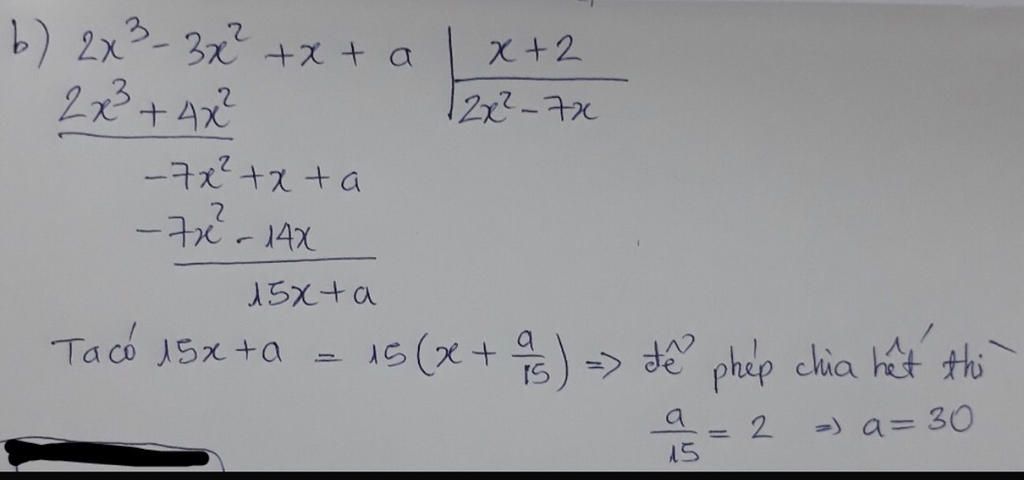 b) 2x³ - 3x² + x + a | x + 2
2x³ + 4x² | 2x² - 7x
-7x² + x + a
-7x² - 14x
15x + a
Ta có 15x + a = 15(x + a/15) => để phép chia hết thì
a/15 = 2 => a = 30